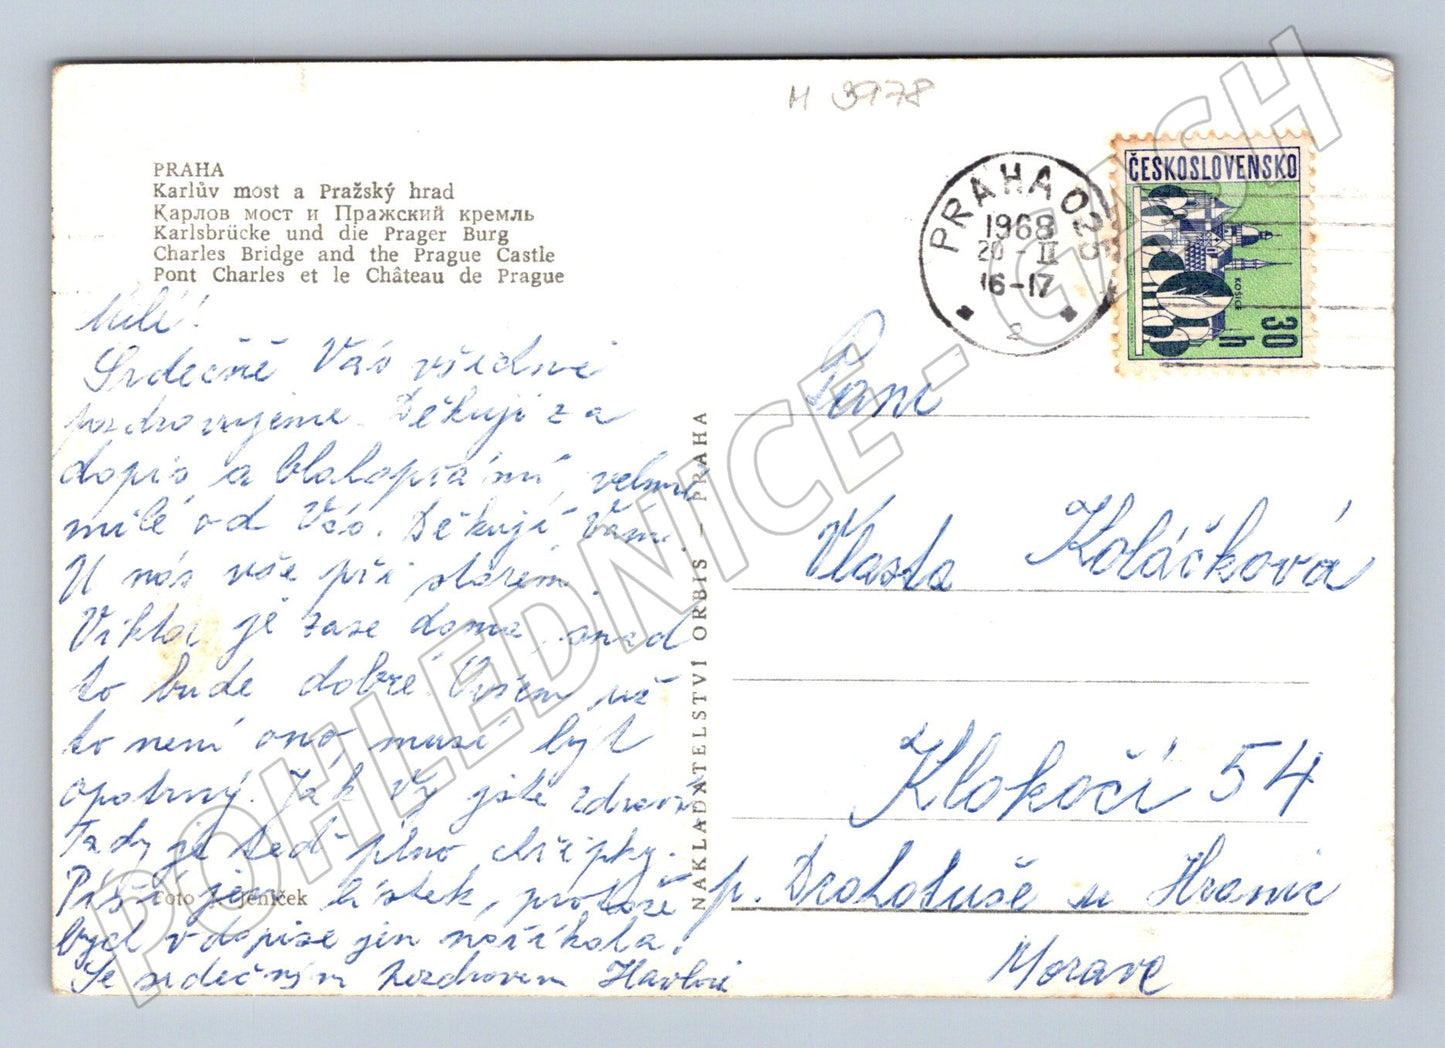 H 3978
PRAHA
Karlův most a Pražský hrad
Карлов мост и Пражский кремль
Karlsbrücke und die Prager Burg
Charles Bridge and the Prague Castle
Pont Charles et le Château de Prague
PRAHA 025
1968
20 - II
16-17
2
ČESKOSLOVENSKO
KOŠICE
30 h
Milí!
Srdečně Vás všichni
pozdravujeme. Děkuji za
dopis a blahopřání, velmi
milé od Vás. Děkuji Vám.
U nás vše při starém.
Viktor je zase doma, snad
to bude dobré. Ovšem už
to není ono musí být
opatrný. Jak Vy jste zdrávi
Tady je teď plno chřipky.
Píši jen lístek, protože
bych v dopise jen naříkala.
Se srdečným pozdravem
Foto Jeníček
NAKLADATELSTVÍ ORBIS - PRAHA
Paní
Vlasta Koláčková
Klokočí 54
p. Drahotuše u Hranic
Morava
POHLEDNICE - GASH